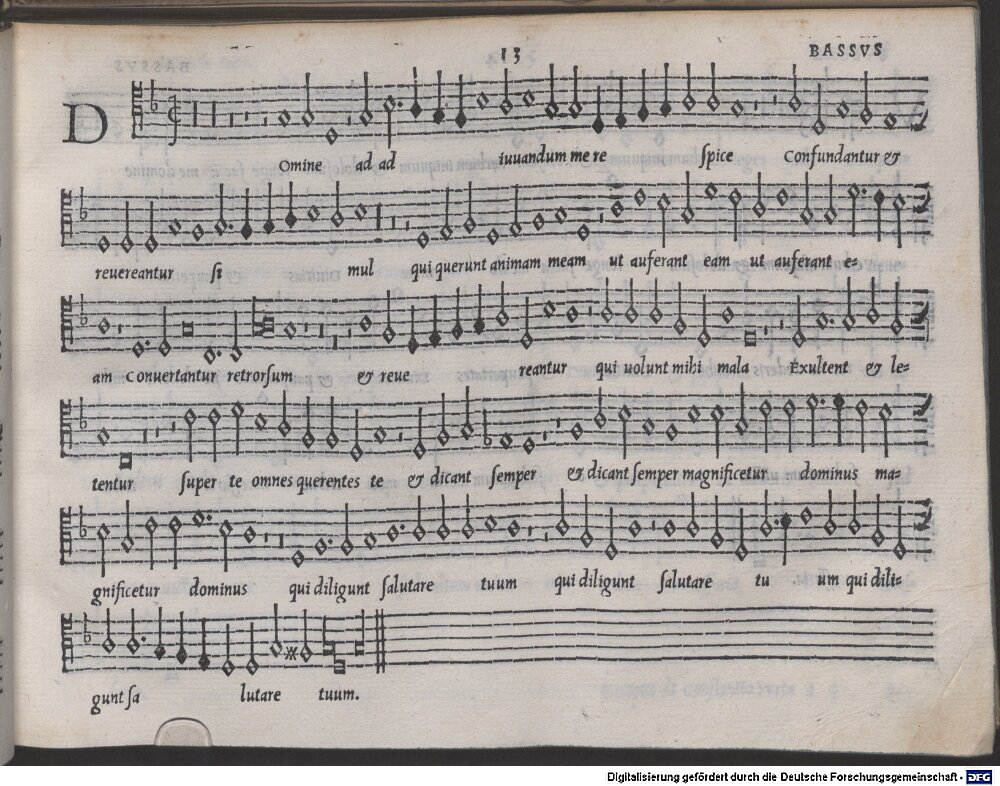 13 BASSVS
D
omine ad ad iuuandum me re spice Confundantur &
reuereantur si mul qui querunt animam meam ut auferant eam ut auferant e=
am Conuertantur retrorsum & reue reantur qui uolunt mihi mala Exultent & le=
tentur super te omnes querentes te & dicant semper & dicant semper magnificetur dominus ma=
gnificetur dominus qui diligunt salutare tuum qui diligunt salutare tu um qui dili=
gunt sa lutare tuum.
Digitalisierung gefördert durch die Deutsche Forschungsgemeinschaft - DFG